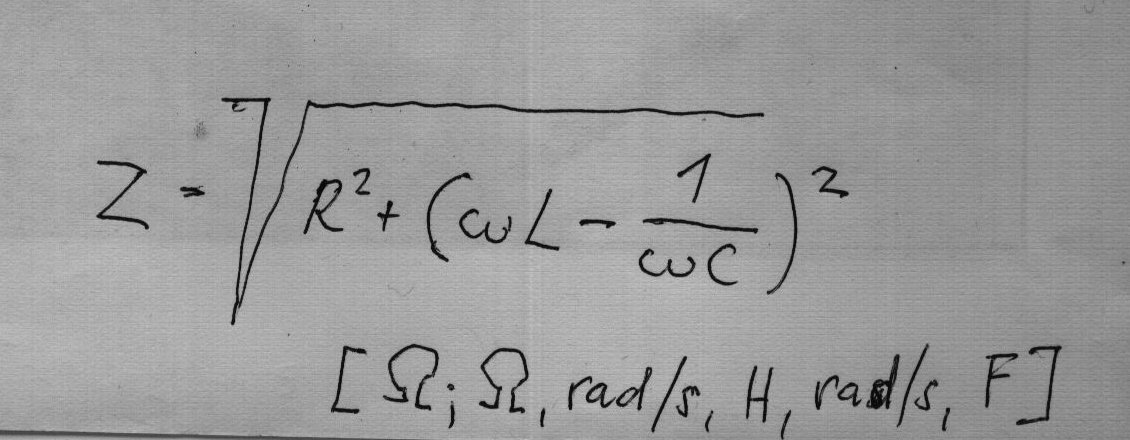 Z = √(R² + (ωL - 1/(ωC))²)
[Ω; Ω, rad/s, H, rad/s, F]